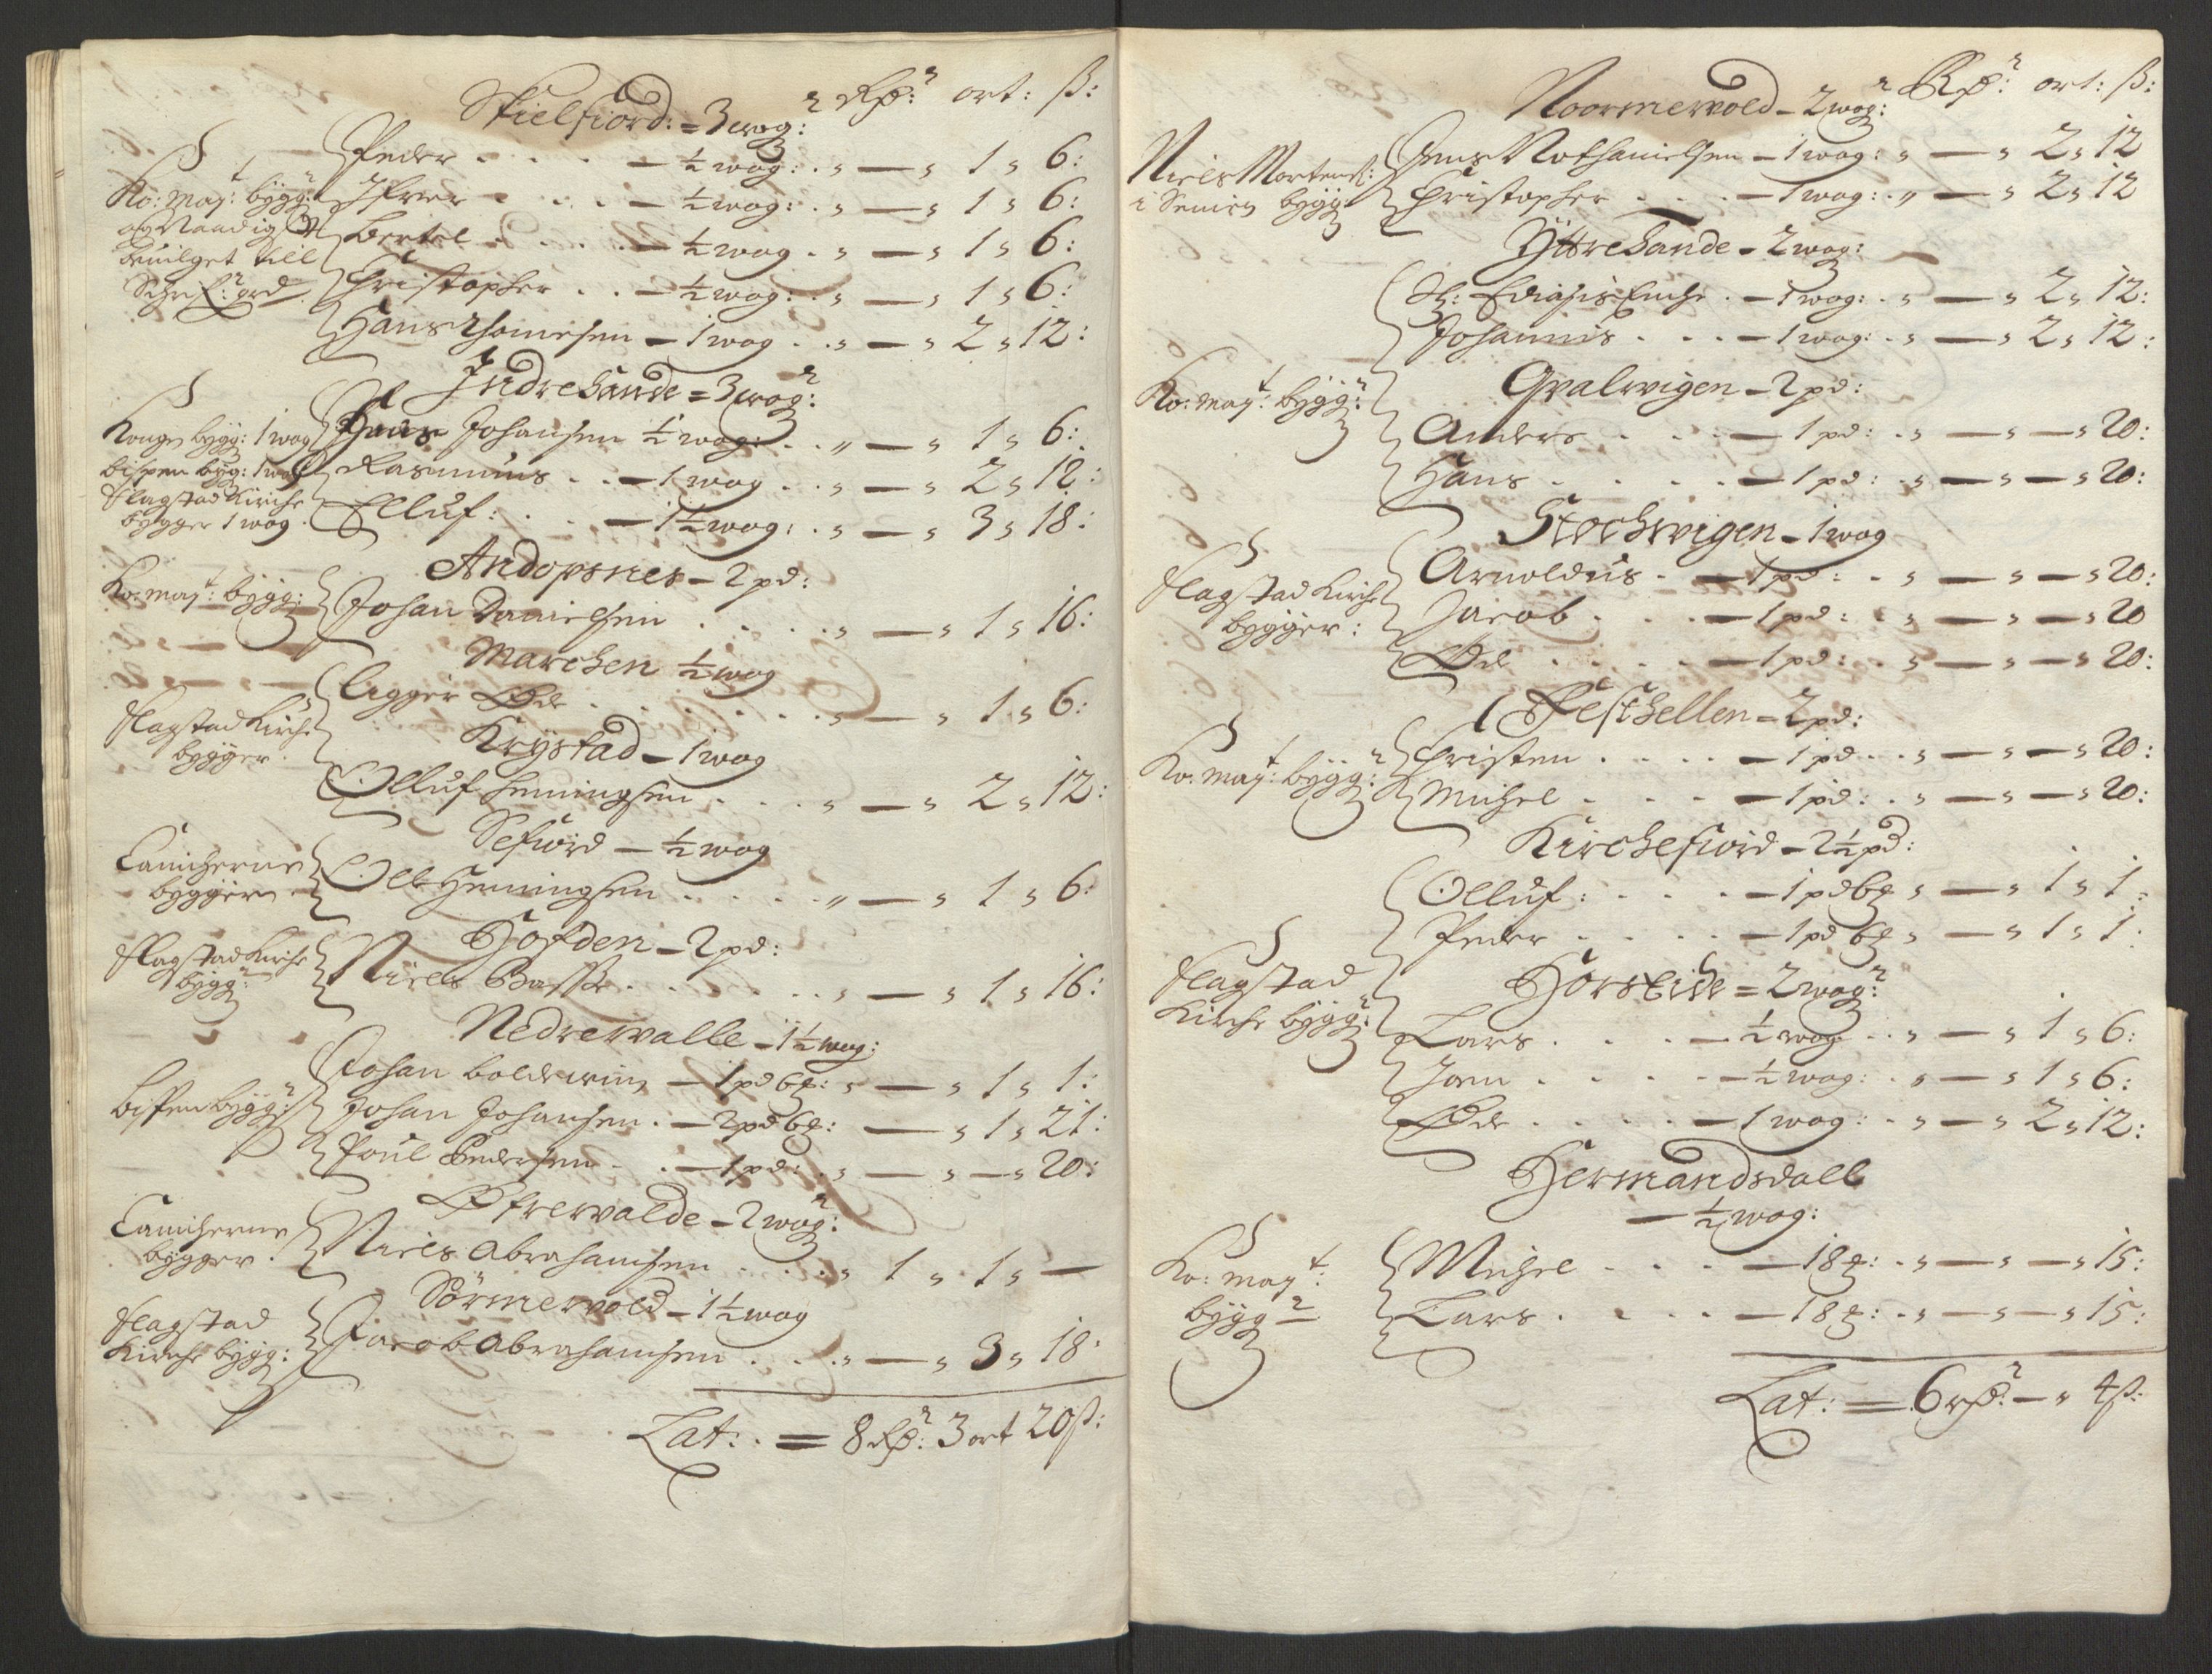 Skielfiord: = 3 wog: Rdr: ort: ß:
Peder . . . . — ½ wog: . „ — „ 1 „ 6:
Ko: May:t bygg: Ifver . . . . — ½ wog: . „ — „ 1 „ 6:
og Naadigst Bertel . . . . — ½ wog . „ — „ 1 „ 6:
bevilget till Christopher . . — ½ wog: . „ — „ 1 „ 6:
Hans Thomesen — 1 wog . . „ — „ 2 „ 12:
Indresande = 3 wog:
Kongen bygg: 1 wog Hans Johansen ½ wog: . . „ — „ 1 „ 6:
bispen byg: 1 wog Rasmus . . — 1 wog . . „ — „ 2 „ 12:
Flagstad Kirche
bygger 1 wog . Elluf: . . . — 1½ wog: . „ — „ 3 „ 18:
Andopsnes — 2 pd:
Ko: may:t bygg: Johan Danielsen . . . . . „ — „ 1 „ 16:
Marchen ½ wog
ligger Øde . . . . . . . „ — „ 1 „ 6:
Flagstad Kirche
bygger . Krystad — 1 wog
Olluf Henningsen . . . . „ — „ 2 „ 12:
Sefiord — ½ wog
Canicherne
bygger Ole Henningsen . . . . . „ — „ 1 „ 6:
Hofden — 2 pd:
Flagstad Kirche
bygg: Niels Basse . . . . . . „ — „ 1 „ 16:
Nedrevalle — 1½ wog:
Johan Boldevin — 1 pd 6 ℔: „ — „ 1 „ 1:
Bispen bygg: Johan Johansen . — 2 pd 6 ℔: — „ 1 „ 21:
Poul Pedersen . . — 1 pd: . „ — „ — „ 20:
Øfrevalde — 2 wog:
Canicherne
bygger . Niels Abrahamsen . . . . „ 1 „ 1 „ —
Sörmervold — 1½ wog
Flagstad
Kirche bygg: Jacob Abrahamsen . . . . „ — „ 3 „ 18:
Lat: . = 8 Rdr: 3 ort 20 ß:
Noormervold — 2 wog: Rdr: ort: ß:
Niels Mortens: Jens Nathanielsen — 1 wog: „ — „ 2 „ 12
i Senien bygg: Christopher . . . — 1 wog: . „ — „ 2 „ 12
Yttresande — 2 wog:
. — 1 wog: . „ — „ 2 „ 12:
Johannis . . . — 1 wog: . „ — „ 2 „ 12:
Qvalvigen — 2 pd:
Ko: may:t bygg:
Anders . . . . — 1 pd: . „ — „ — „ 20:
Hans . . . . . — 1 pd: . „ — „ — „ 20:
Stochvigen — 1 wog
Flagstad Kirche
bygger: Arnoldus . — 1 pd: . „ — „ — „ 20:
Jacob . . . — 1 pd: . „ — „ — „ 20
Øde . . . . — 1 pd: . „ — „ — „ 20:
Festhellen = 2 pd:
Ko: may:t bygg: Christen . . . . — 1 pd . . „ — „ — „ 20:
Michel . . . . — 1 pd: . „ — „ — „ 20:
Kirchefiord — 2½ pd:
Olluf: . . . . — 1 pd 6 ℔ „ — „ 1 „ 1:
Peder . . . . — 1 pd 6 ℔ „ — „ 1 „ 1:
Flagstad
Kirche bygg: Horseide = 2 wog:
Lars . . . . — ½ wog . . „ — „ 1 „ 6:
Joen . . . . . — ½ wog: . „ — „ 1 „ 6:
Øde . . . . . — 1 wog: . „ — „ 2 „ 12:
Hermandsdall
— ½ wog:
Ko: may:t:
bygg: Michel . . . . — 18 ℔: . „ — „ — „ 15:
Lars . . . . — 18 ℔: . „ — „ — „ 15:
Lat: = 6 rdr: — „ 4 ß: